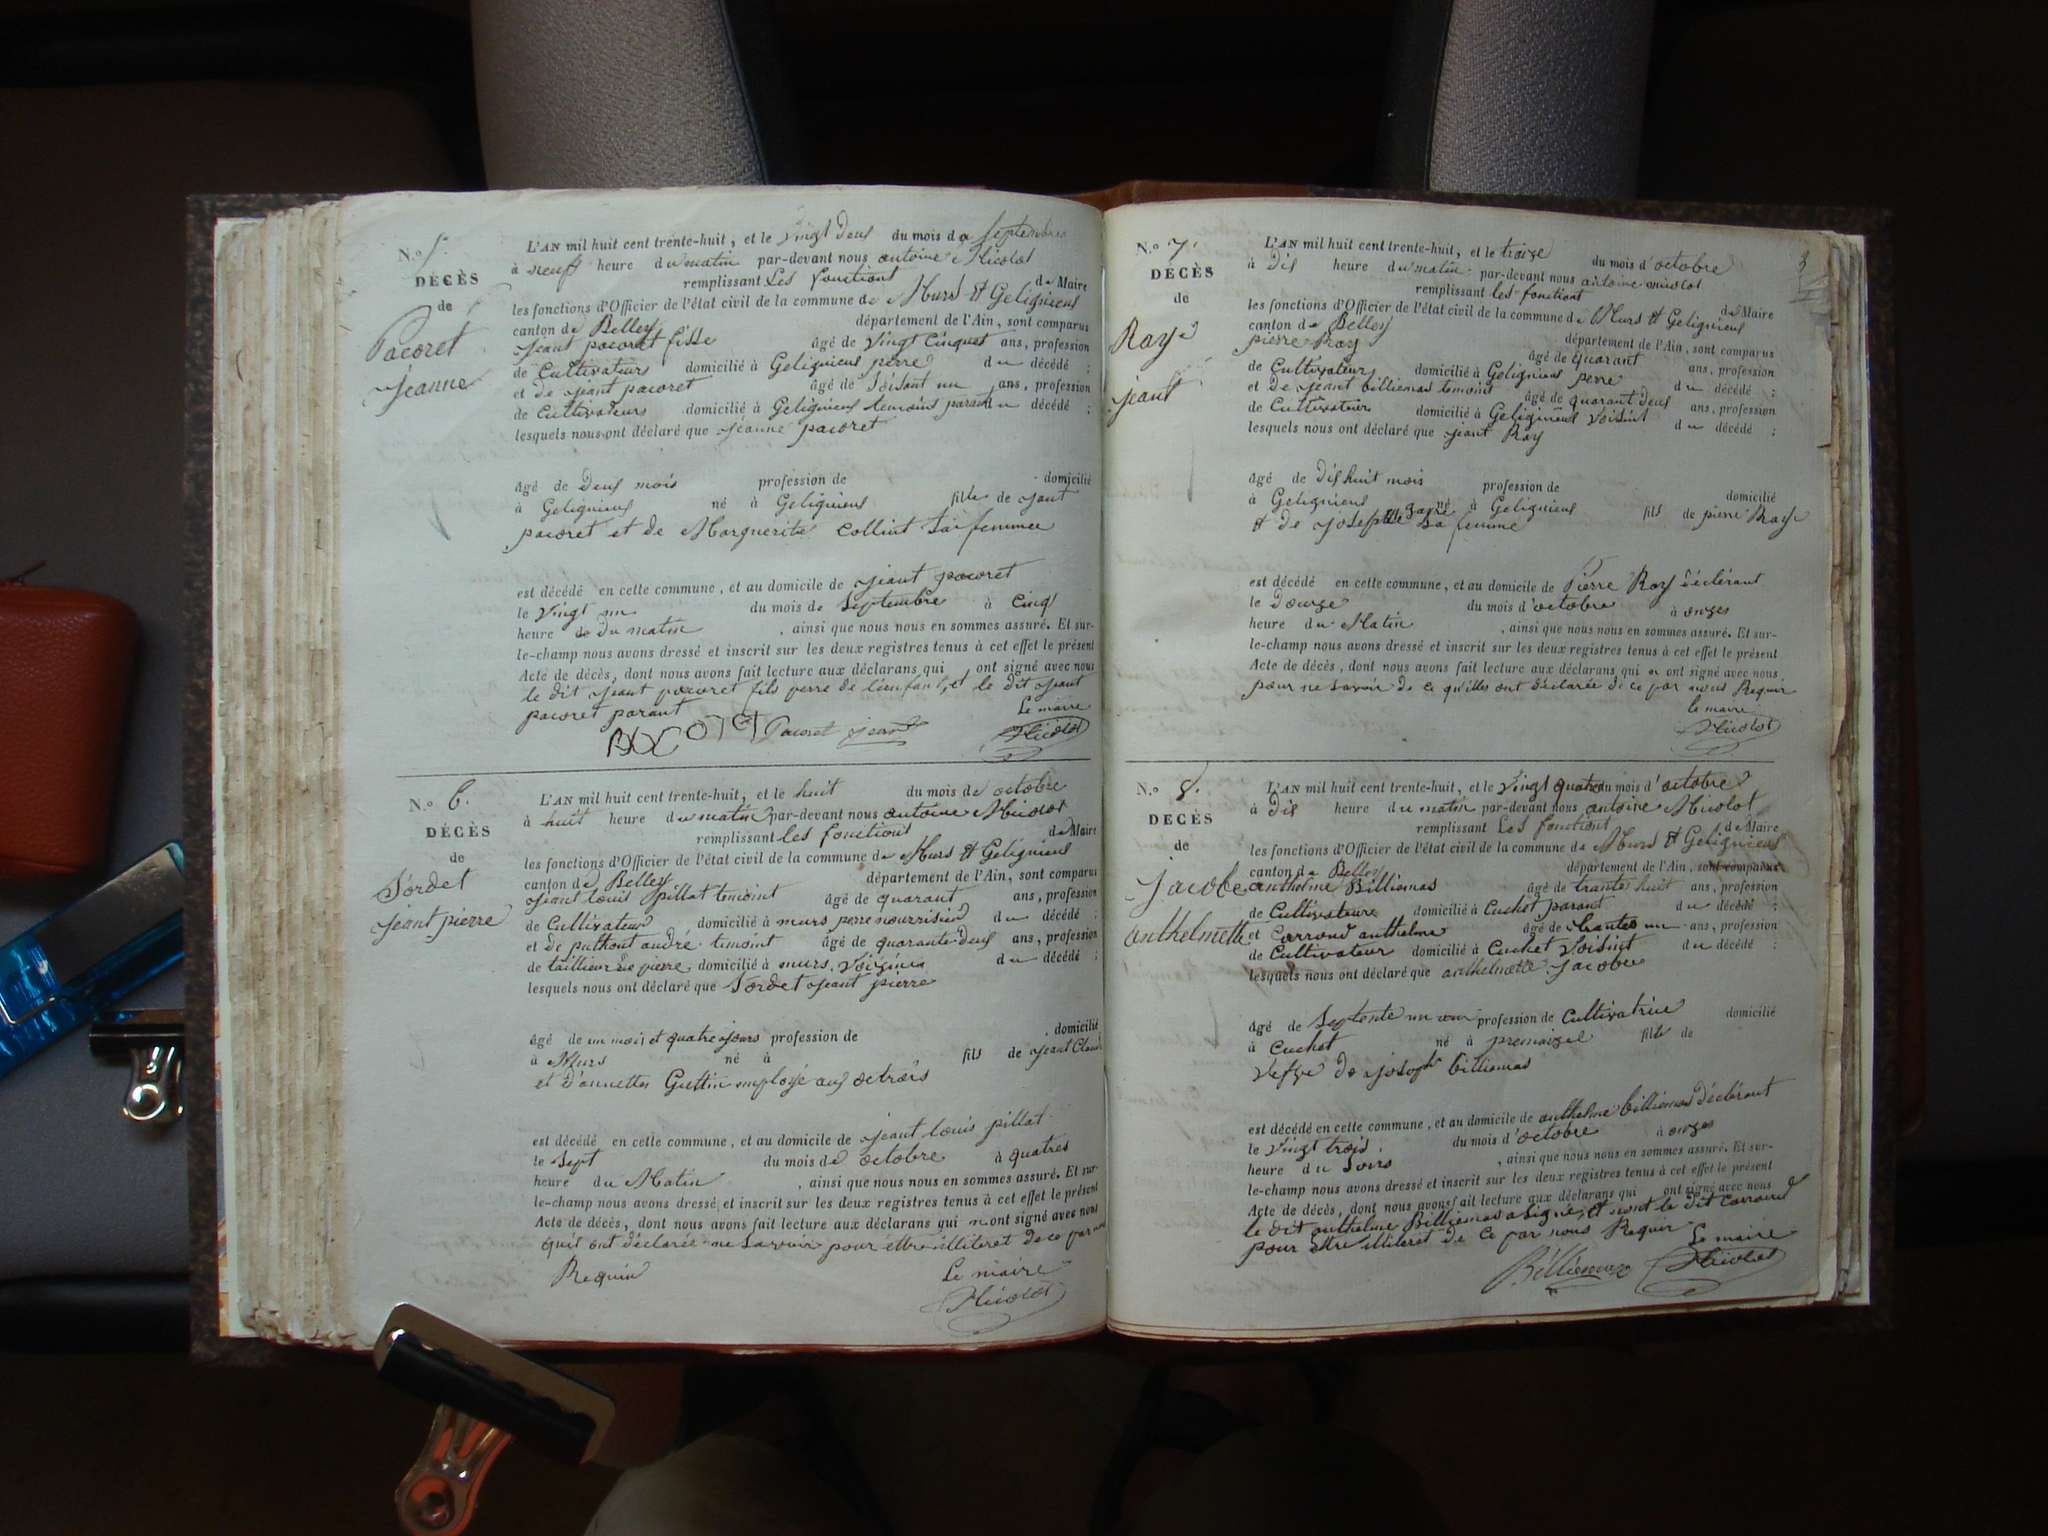 N.o 5.
DÉCÈS
de
Pacoret
Jeanne
L'AN mil huit cent trente-huit, et le vingt deus du mois de Septembre
à neuf heure du matin par-devant nous antoine Nicolot
remplissant Les fonctiont de Maire
les fonctions d'Officier de l'état civil de la commune de Murs et Geligneus
canton de Belley département de l'Ain, sont comparus
jeant pacoret fisse âgé de vingt cinques ans, profession
de Cultivateurs domicilié à Geligneus perre du décédé ;
et de jeant pacoret âgé de Soisant un ans, profession
de Cultivateurs domicilié à Geligneus temoins parant du décédé ;
lesquels nous ont déclaré que jeanne pacoret
âgé de Deus mois profession de domicilié
à Geligneus né à Geligneus fille de jant
pacoret et de Marguerite Collint Sa femmee
est décédé en cette commune, et au domicile de jeant pacoret
le vingt un du mois de Septembre à cinq
heure de du matin , ainsi que nous nous en sommes assuré. Et sur-
le-champ nous avons dressé et inscrit sur les deux registres tenus à cet effet le présent
Acte de décès, dont nous avons fait lecture aux déclarans qui ont signé avec nous
le dit jeant pacoret fils perre de l'enfant, et le dit jeant
pacoret parant Le maire
Pacoret jean Nicolot
N.o 6.
DÉCÈS
de
Sordet
jeant pierre
L'AN mil huit cent trente-huit, et le huit du mois de octobre
à huit heure du matin par-devant nous antoine Nicolot
remplissant les fonctiont de Maire
les fonctions d'Officier de l'état civil de la commune de Murs et Geligneus
canton de Belley département de l'Ain, sont comparus
jeant louis pillat temoint âgé de quarant ans, profession
de Cultivateur domicilié à murs perre nourrisier du décédé ;
et de puthont andré temoint âgé de quarante Deus ans, profession
de taillieur de pierre domicilié à murs, Voizins du décédé ;
lesquels nous ont déclaré que Sordet jeant pierre
âgé de un mois et quatre jours profession de domicilié
à Murs né à fils de jeant Claude
et D'annettes Guttin employé aus octrois
est décédé en cette commune, et au domicile de jeant louis pillat
le Sept du mois de octobre à quatres
heure du Matin , ainsi que nous nous en sommes assuré. Et sur-
le-champ nous avons dressé et inscrit sur les deux registres tenus à cet effet le présent
Acte de décès, dont nous avons fait lecture aux déclarans qui n ont signé avec nous
quis ont déclarée ne Savoir pour ettre illiteret de ce par nous
Requis Le maire
Nicolot
N.o 7.
DÉCÈS
de
Ray
jeant
L'AN mil huit cent trente-huit, et le treize du mois d'octobre
à Dis heure du matin par-devant nous antoine nicolot
remplissant les fonctiont de Maire
les fonctions d'Officier de l'état civil de la commune de Murs et Geligneus
canton de Belley département de l'Ain, sont comparus
pierre Ray âgé de quarant ans, profession
de Cultivateurs domicilié à Geligneus perre du décédé ;
et de jeant billiemas temoint âgé de quarant deus ans, profession
de Cultivateur domicilié à Geligneus Voisint du décédé ;
lesquels nous ont déclaré que jeant Ray
âgé de Dis huit mois profession de domicilié
à Geligneus né à Geligneus fils de pierre Ray
et de josephte Sa femme
est décédé en cette commune, et au domicile de Pierre Ray déclérant
le Douze du mois d'octobre à onzes
heure du Matin , ainsi que nous nous en sommes assuré. Et sur-
le-champ nous avons dressé et inscrit sur les deux registres tenus à cet effet le présent
Acte de décès, dont nous avons fait lecture aux déclarans qui n ont signé avec nous
pour ne Savoir de ce qu'illes ont déclarée de ce par nous Requir
Le maire
Nicolot
3
N.o 8.
DÉCÈS
de
Jacobe
anthelmette
L'AN mil huit cent trente-huit, et le vingt quatre du mois d'octobre
à Dis heure du matin par-devant nous antoine Nicolot
remplissant Les fonctiont de Maire
les fonctions d'Officier de l'état civil de la commune de Murs et Geligneus
canton de Belley département de l'Ain, sont comparus
anthelme Billiemas âgé de trante huit ans, profession
de Cultivateure domicilié à Cuchet parant du décédé ;
et Carrond anthelme âgé de trantes un ans, profession
de Cultivateur domicilié à Cuchet Voisint du décédé ;
lesquels nous ont déclaré que anthelmette Jacobe
âgé de Septente un profession de Cultivatrice domicilié
à Cuchet né à premeizel fille de
Vefve de joseph billiemas
est décédé en cette commune, et au domicile de anthelme billiemas déclérant
le vingt trois du mois d'octobre à onzes
heure du Soirs , ainsi que nous nous en sommes assuré. Et sur-
le-champ nous avons dressé et inscrit sur les deux registres tenus à cet effet le présent
Acte de décès, dont nous avons fait lecture aux déclarans qui ont signé avec nous
le dit anthelme Billiemas a signe, et nont le dit Carrond
pour ettre illiteret de ce par nous Requir Le maire
Billiemaz Nicolot